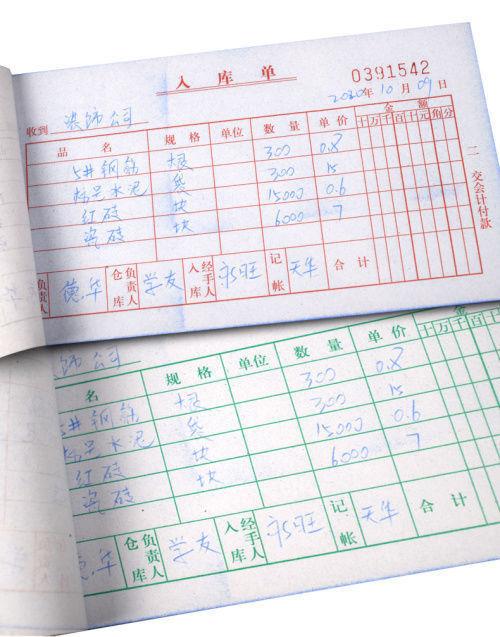 入库单
0391542
2020年10月09日
收到 装饰公司
品名 规格 单位 数量 单价 金额
十万千百十元角分
5井钢筋 根 300 0.8
水泥 袋 300 15
红砖 块 15000 0.6
瓷砖 块 6000 7
二 交会计付款
负责人 德华 仓库负责人 学友 入库经手人 永旺 记帐 天华 合计
饰公司
名 规格 单位 数量 单价 金
十万千百十
5井钢筋 根 300 0.8
水泥 袋 300 15
红砖 块 15000 0.6
瓷砖 块 6000 7
德华 仓库负责人 学友 入库经手人 永旺 记帐 天华 合计